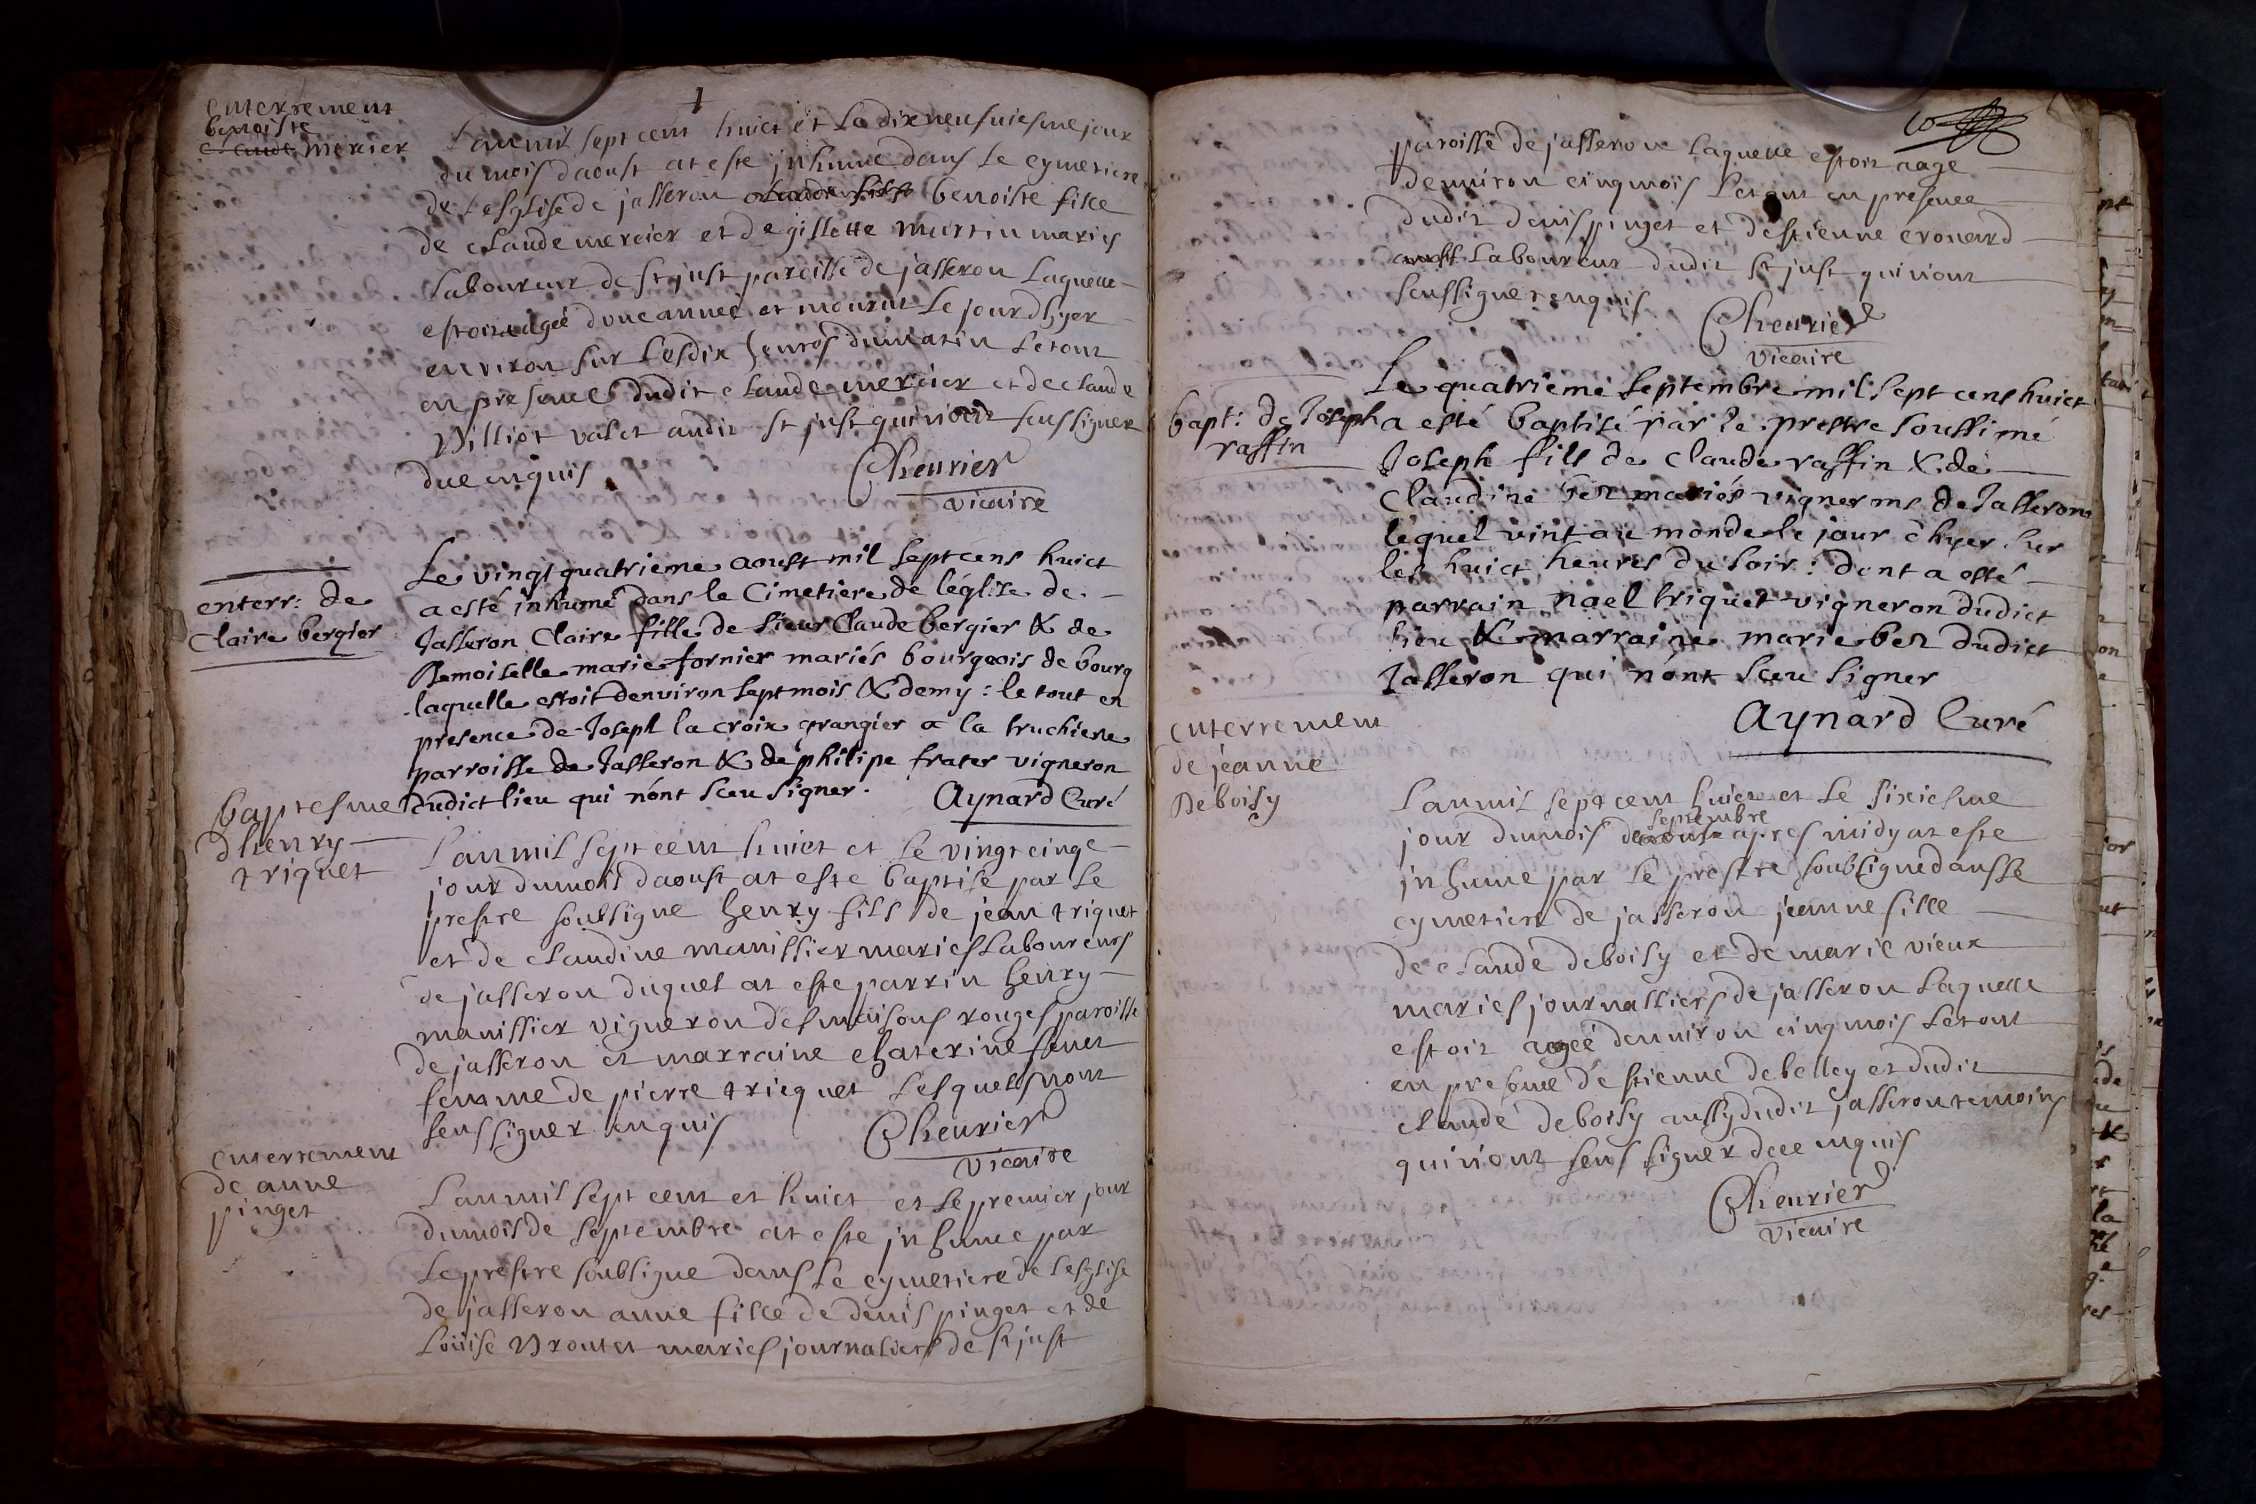 enterrement
benoiste
claude mercier
Lanmil sept cent huict et Le dixneufuiesme jour
du mois daoust at este jnhume dans Le cymetiere
de Lesglise de jasseron claude fils benoiste fille
de claude mercier et de gillette martin maries
Laboureur de st just paroisse de jasseron Laquelle
estoit agée dune année et mourut Le jour dhyer
environ sur Les dix heures du matin Le tout
en presence dudit claude mercier et de claude
Billiot valet audit st just qui niont seu signer
due enquis
Cheurier
vicaire
enterr: de
Claire bergier
Le vingt quatrieme aoust mil sept cens huict
a esté inhumé dans le Cimetiere de léglise de
Jasseron Claire fille de sieur Claude bergier & de
Demoiselle marie fornier mariés bourgeois de bourg
laquelle estoit denviron sept mois & demy : le tout en
presence de Joseph la croix grangier a la truchiere
parroisse de Jasseron & de philipe frater vigneron
dudict lieu qui nónt sceu signer.
Aynard Curé
baptesme
dhenry
triquet
Lanmil sept cent huict et Le vingt cinqe
jour dumois daoust at este baptisé par Le
prestre soubsigne henry fils de jean triquet
et de claudine manissier maries Laboureurs
de jasseron duquel at este parrin henry
manissier vigneron des maisons rouges paroisse
de jasseron et marraine chaterine
femme de pierre tricquet Lesquels niont
seu signer enquis
Cheurier
vicaire
enterrement
de anne
pinget
Lanmil sept cent et huict et Le premier jour
dumois de septembre at este jnhume par
Le prestre soubsigne dans Le cymetiere de Lesglise
de jasseron anne fille de denis pinget et de
Louise Broutet maries journaliers de st just
paroisse de jasseron laquelle estoit aage
denuiron cinq mois Le tout en presence
dudit denis pinget et destienne cronard
aussi Laboureur dudit st just qui niont
seu signer enquis
Cheurier
vicaire
bapt: de Joseph
raffin
Le quatrieme septembre mil sept cens huict
a esté baptisé par le prestre soussiné
Joseph fils de claude raffin & de
Claudine bez mariés vignerons de Jasseron
lequel vint au monde le jour d'hyer sur
les huict heures du soir : dont a esté
parrain noel triquet vigneron dudict
lieu & marraine marie bez dudict
Jasseron qui nónt sceu signer
Aynard Curé
enterrement
de jeanne
Deboisy
Lanmil sept cent huict et Le sixiesme
septembre
jour dumois daoust apres midy at este
jnhume par Le prestre soubsigné dans Le
cymetiere de jasseron jeanne fille
de claude deboisy et de marie vieux
maries journalliers de jasseron Laquelle
estoit agée denuiron cinq mois Le tout
en presence destienne debelley et dudit
claude deboisy aussy dudit jasseron temoins
qui niont seu signer dece enquis
Cheurier
vicaire